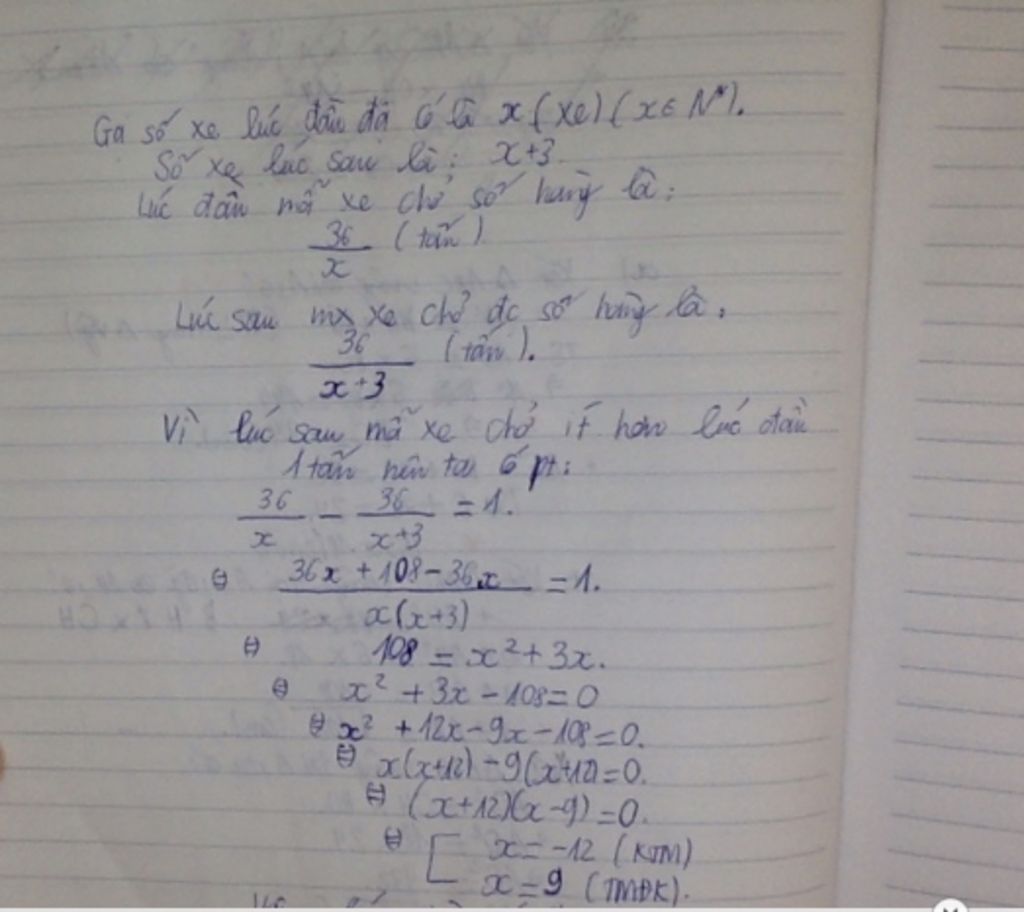 Gọi số xe lúc đầu đã có là x (xe) (x ∈ N*).
Số xe lúc sau là: x+3
Lúc đầu mỗi xe chở số hàng là:
36/x (tấn)
Lúc sau mỗi xe chở đc số hàng là:
36/(x+3) (tấn).
Vì lúc sau mỗi xe chở ít hơn lúc đầu
1 tấn nên ta có pt:
36/x - 36/(x+3) = 1.
⇔ (36x + 108 - 36x)/(x(x+3)) = 1.
⇔ 108 = x² + 3x.
⇔ x² + 3x - 108 = 0
⇔ x² + 12x - 9x - 108 = 0.
⇔ x(x+12) - 9(x+12) = 0.
⇔ (x+12)(x-9) = 0.
⇔ [ x = -12 (KTM)
x = 9 (TMĐK).